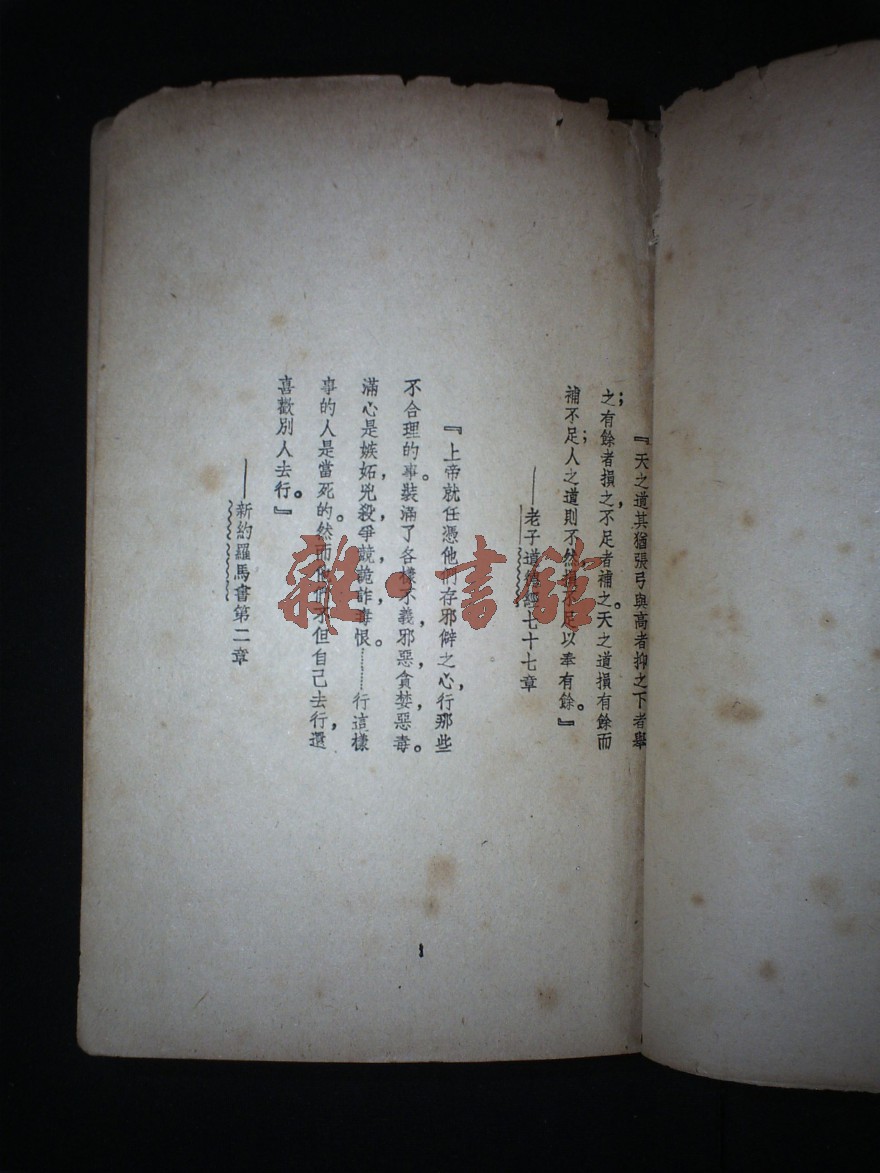 『天之道其猶張弓與高者抑之下者舉
之；有餘者損之，不足者補之。天之道損有餘而
補不足；人之道則不然損不足以奉有餘。』
——老子道德經七十七章
『上帝就任憑他們存邪僻之心，行那些
不合理的事。裝滿了各樣不義，邪惡，貪婪，惡毒。
滿心是嫉妬，兇殺，爭競，詭詐，毒恨。………行這樣
事的人是當死的。然而他們不但自己去行，還
喜歡別人去行。』
——新約羅馬書第二章
雜·書館